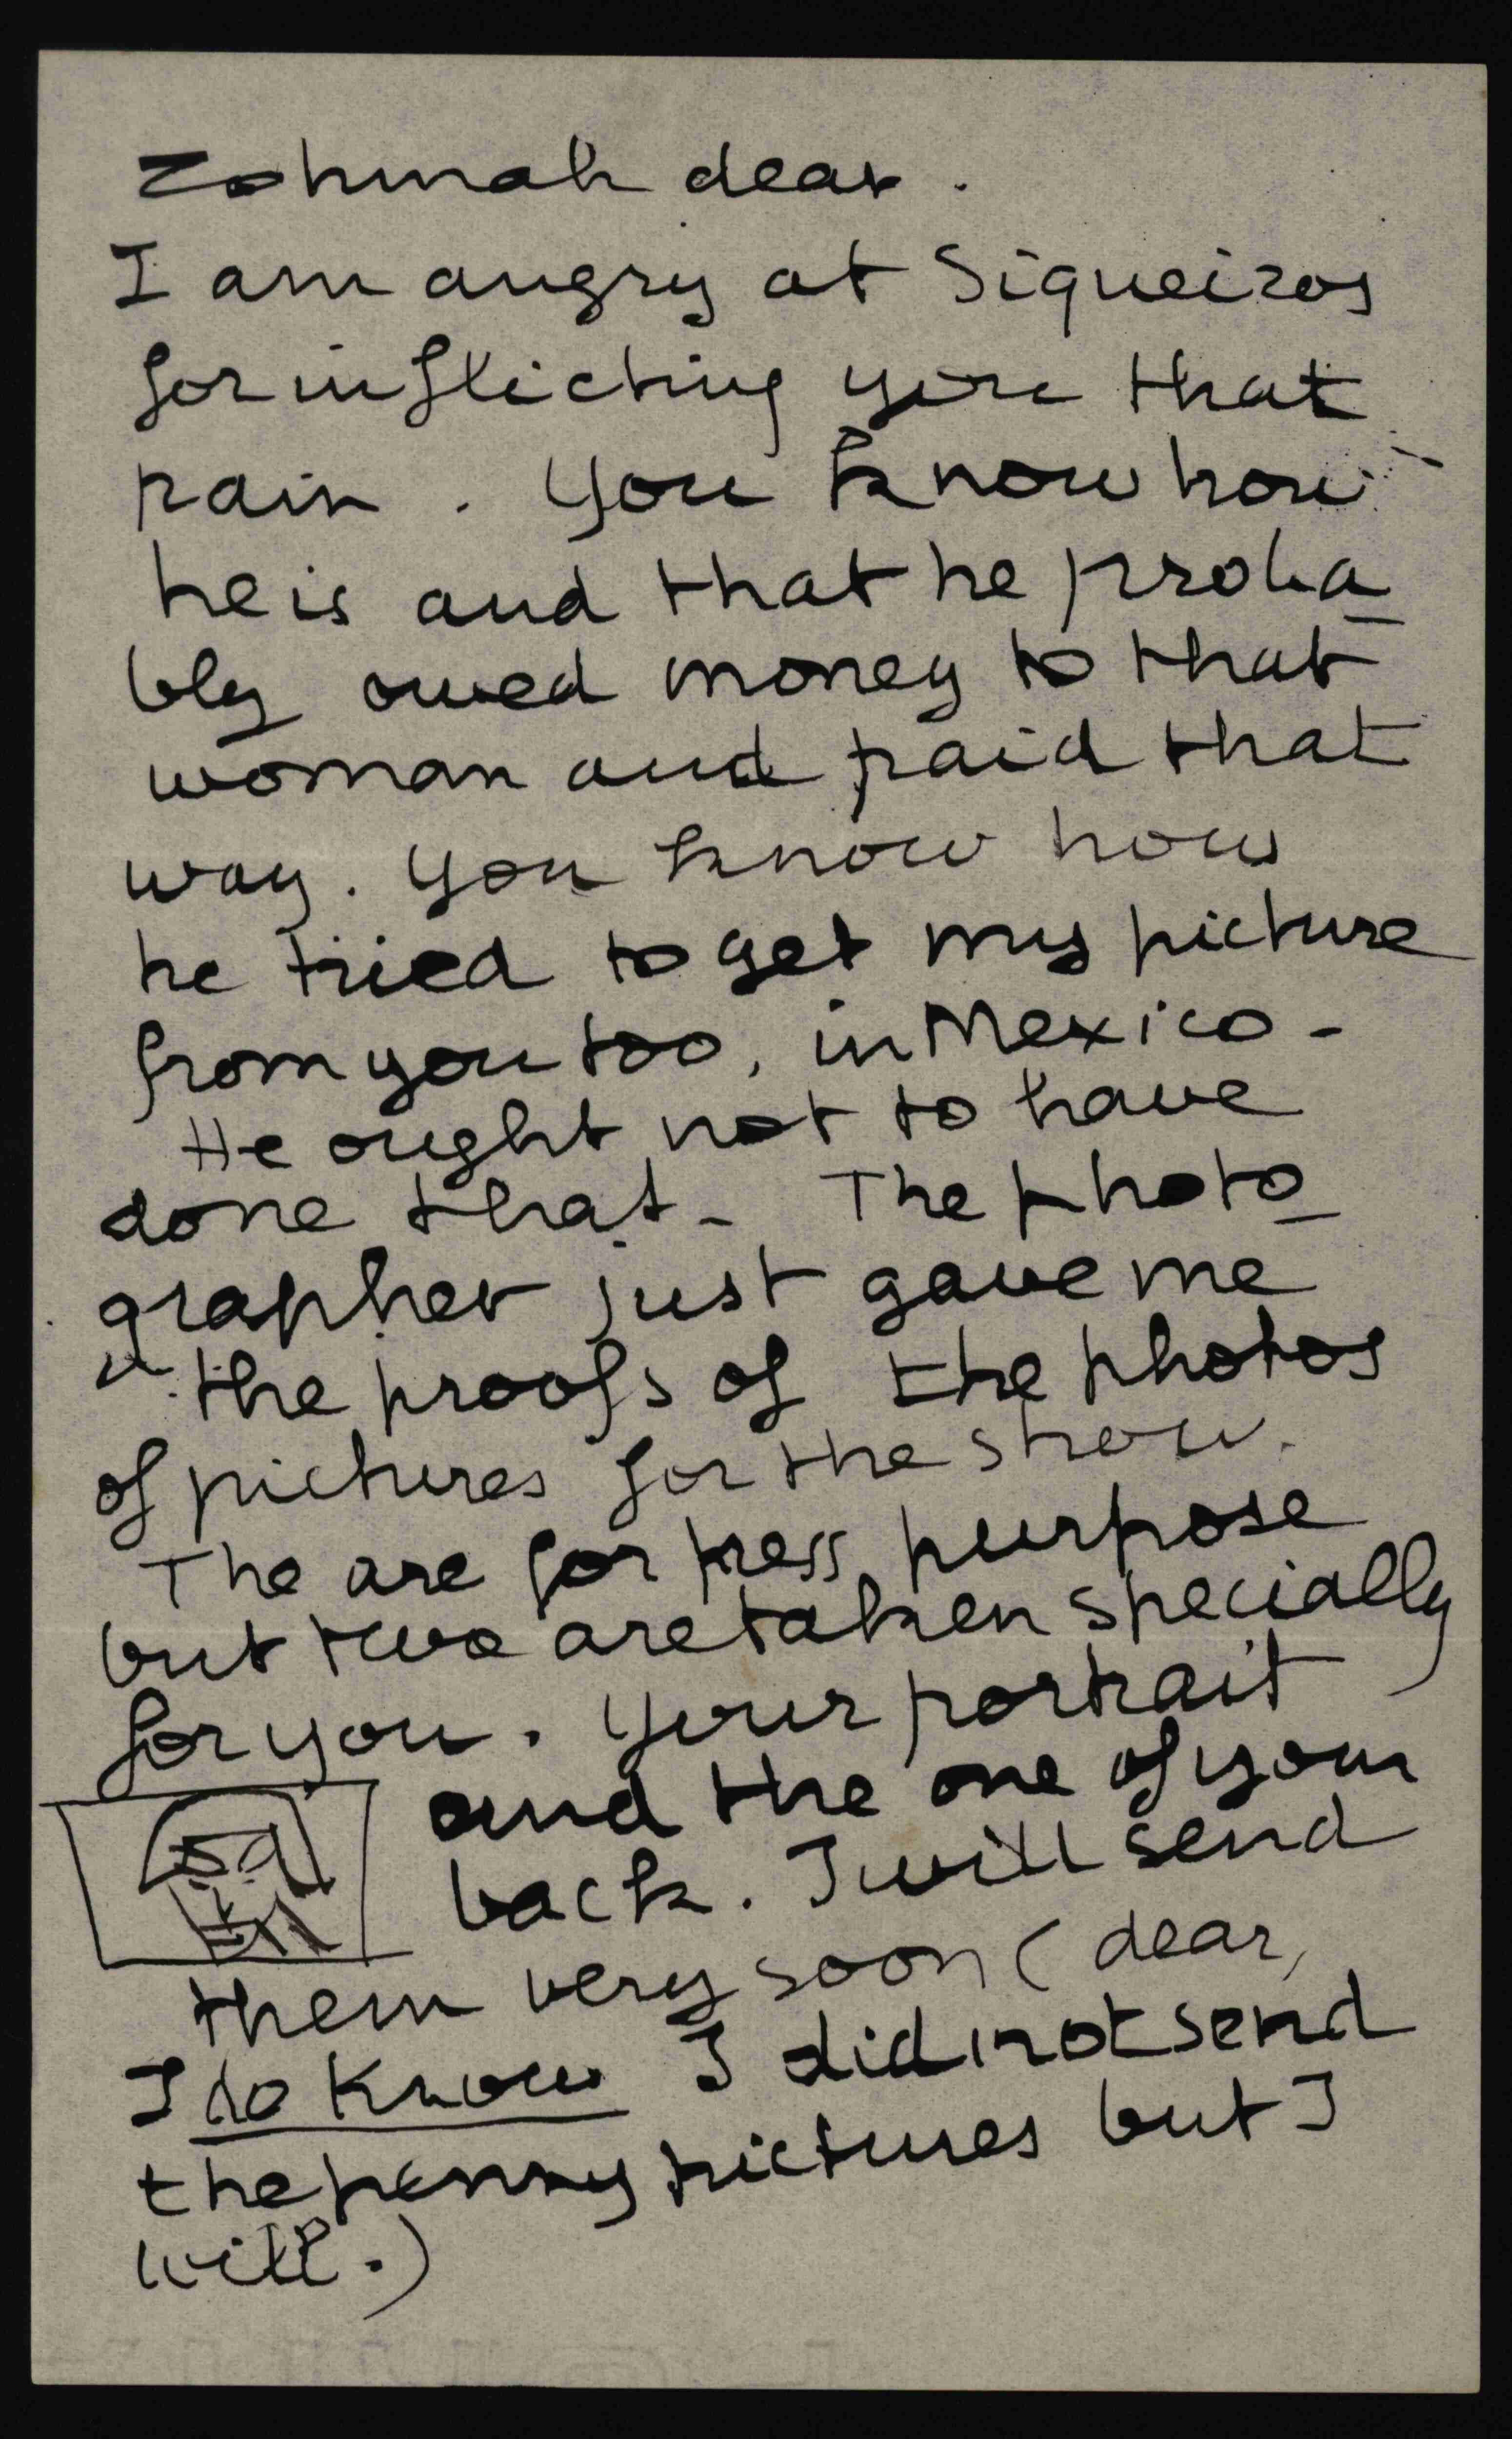 Zohmah dear.
I am angry at Siqueiros
for inflicting you that
pain. You know how
he is and that he proba-
bly owed money to that
woman and paid that
way. You know how
he tried to get my picture
from you too, in Mexico -
He ought not to have
done that - The photo-
grapher just gave me
the proofs of the photos
of pictures for the show.
The are for press purpose
but two are taken specially
for you. Your portrait
and the one of your
back. I will send
them very soon (dear,
I do know I did not send
the penny pictures but I
will.)